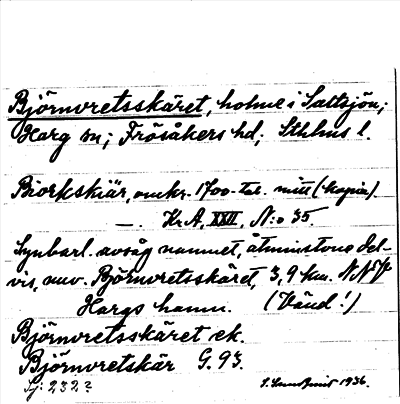 Björnvretsskäret, holme i Saltsjön;
Harg sn; Frösåkers hd; Sthlms l.
Biorkskiär, omkr. 1700-tal. mitt (kopia).
—. Kr.A, XXII, N:o 35.
Synbarl. avsåg namnet, åtminstone del-
vis, nuv. Björnvretsskäret, 3,9 km. N
Hargs hamn. (Vänd!)
Björnvretsskäret ek.
Björnvretskär G. 93.
Sj: 232?
1936.